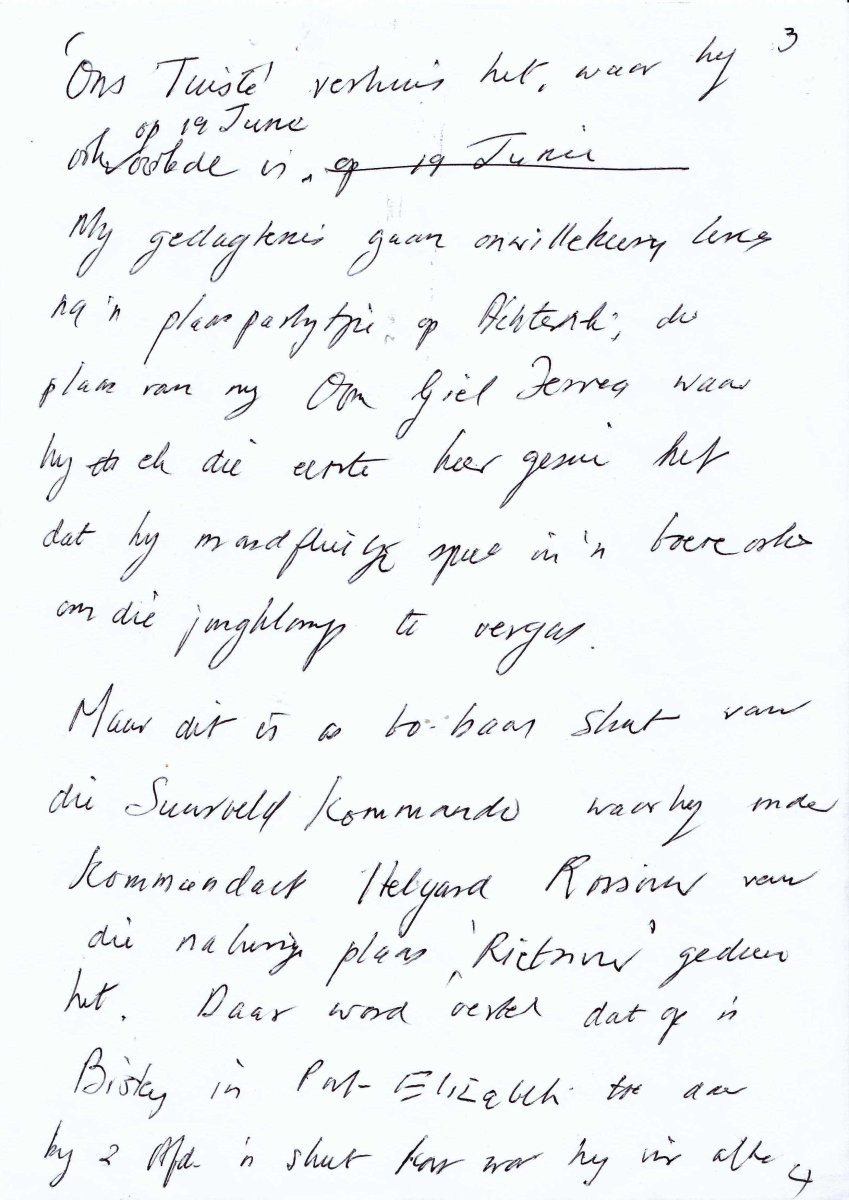 3
'Ons Tuiste' verhuis het, waar hy
op 19 Junie
ook oorlede is, op 19 Junie
My gedagtenis gaan onwillekeurig terug
na 'n plaaspartytjie op die
plaas van my Oom Giel waar
hy ek die eerste keer gesien het
dat hy mondfluitjie speel in 'n boere orkes
om die jongklomp te vergas.
Maar dit is as bo-baas skut van
die Suurveld Kommando waar hy onder
Kommandant Helgard Rossouw van
die naburige plaas 'Rietvlei' gedien
het. Daar word vertel dat op 'n
Bisley in Port-Elizabeth toe daar
by 2 Afd. 'n skut kort was hy vir alle
4